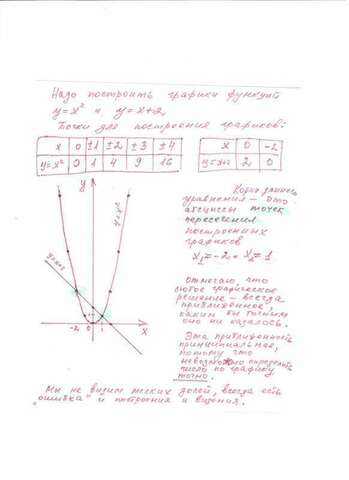 Надо построить графики функций
y = x² и y = x+2
Точки для построения графиков:
x 0 ±1 ±2 ±3 ±4
y=x² 0 1 4 9 16
x 0 -2
y=x+2 2 0
y
y=x²
y=x+2
-2 0 1 x
Корни данного
уравнения – это
абсциссы точек
пересечения
построенных
графиков
x₁ = -2 x₂ = 1
Отмечаю, что
любое графическое
решение – всегда
приближенное,
каким бы точным
оно ни казалось.
Эта приближенность
принципиальная,
потому что
невозможно определить
число по графику
точно.
Мы не видим мелких долей, всегда есть
"ошибка" и построения и видения.